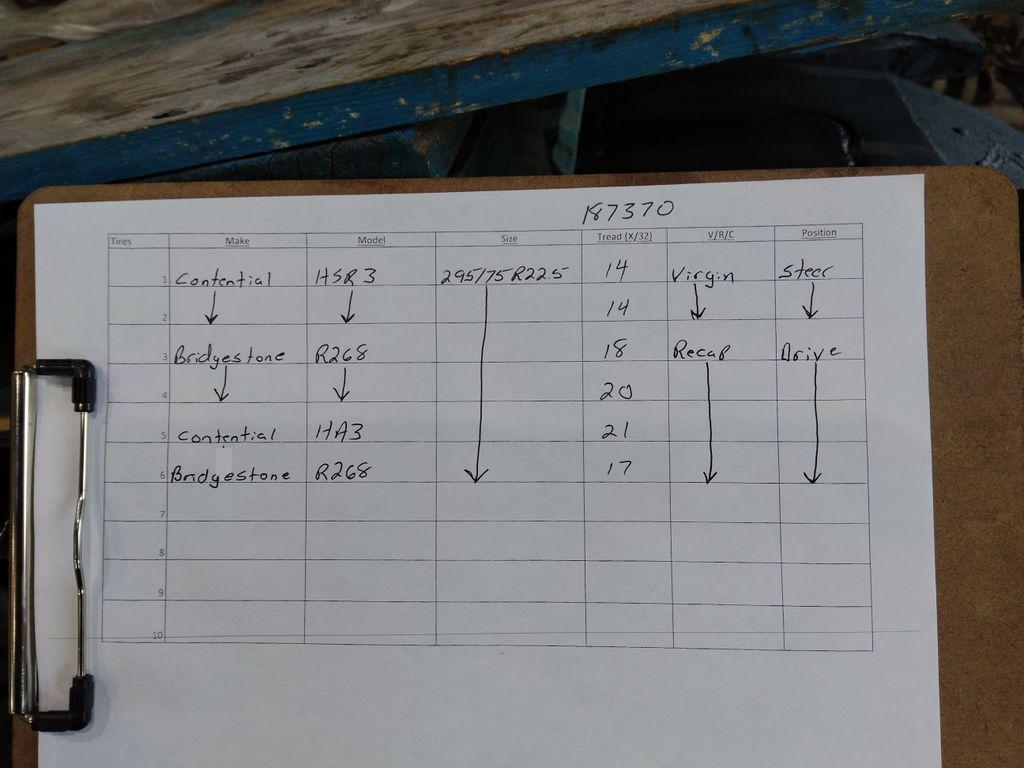 187370
Tires Make Model Size Tread (X/32) V/R/C Position
1 Contential HSR3 295/75R22.5 14 Virgin Steer
2 ↓ ↓ 14 ↓ ↓
3 Bridgestone R268 18 Recap Drive
4 ↓ ↓ 20
5 Contential HA3 21
6 Bridgestone R268 ↓ 17 ↓ ↓
7
8
9
10